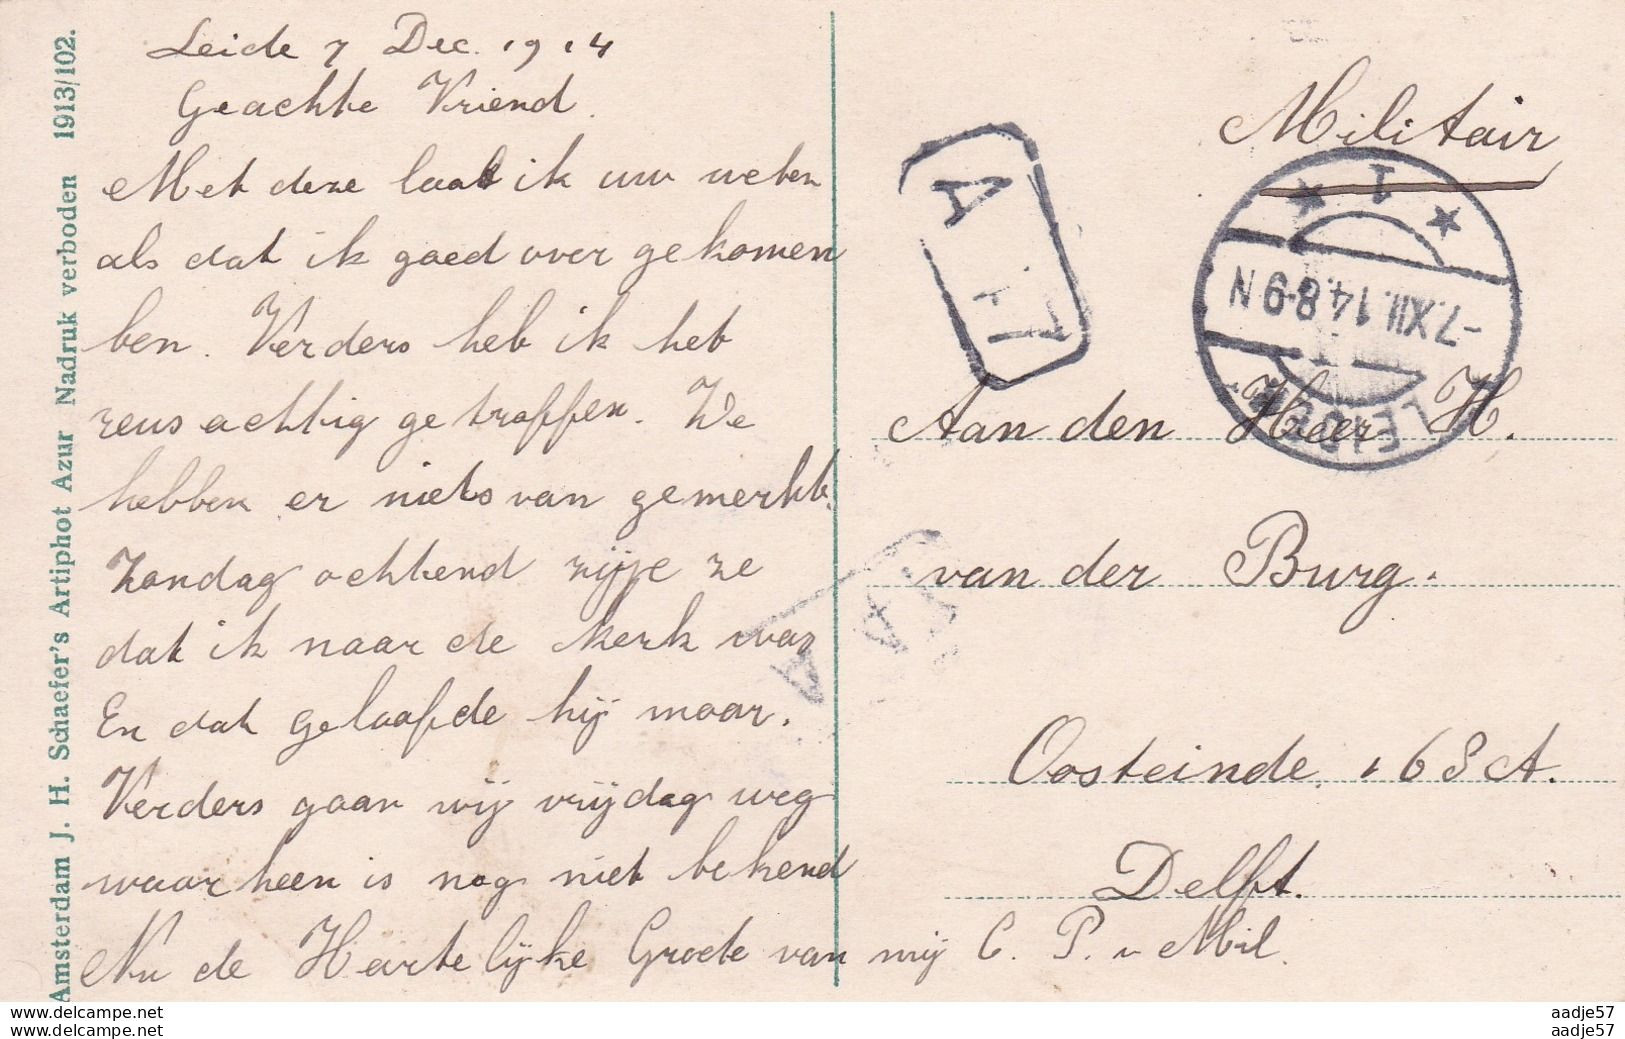 Amsterdam J. H. Schaefer's Artiphot Azur Nadruk verboden 1913/102.
Leide 7 Dec. 1914
Geachte Vriend.
Met deze laat ik uw weten
als dat ik goed over gekomen
ben. Verders heb ik het
reus achtig getroffen. We
hebben er niets van gemerkt.
Zondag ochtend zijje ze
dat ik naar de kerk was
En dat geloofde hij maar.
Verders gaan wij vrijdag weg
waar heen is nog niet bekend
Nu de Hartelijke Groete van mij C. P. v Mil.
Militair
* 1 *
-7.XII.14.8-9N
LEIDEN
Aan den Heer H.
van der Burg.
Oosteinde 168A.
Delft.
www.delcampe.net
www.delcampe.net
aadje57
aadje57